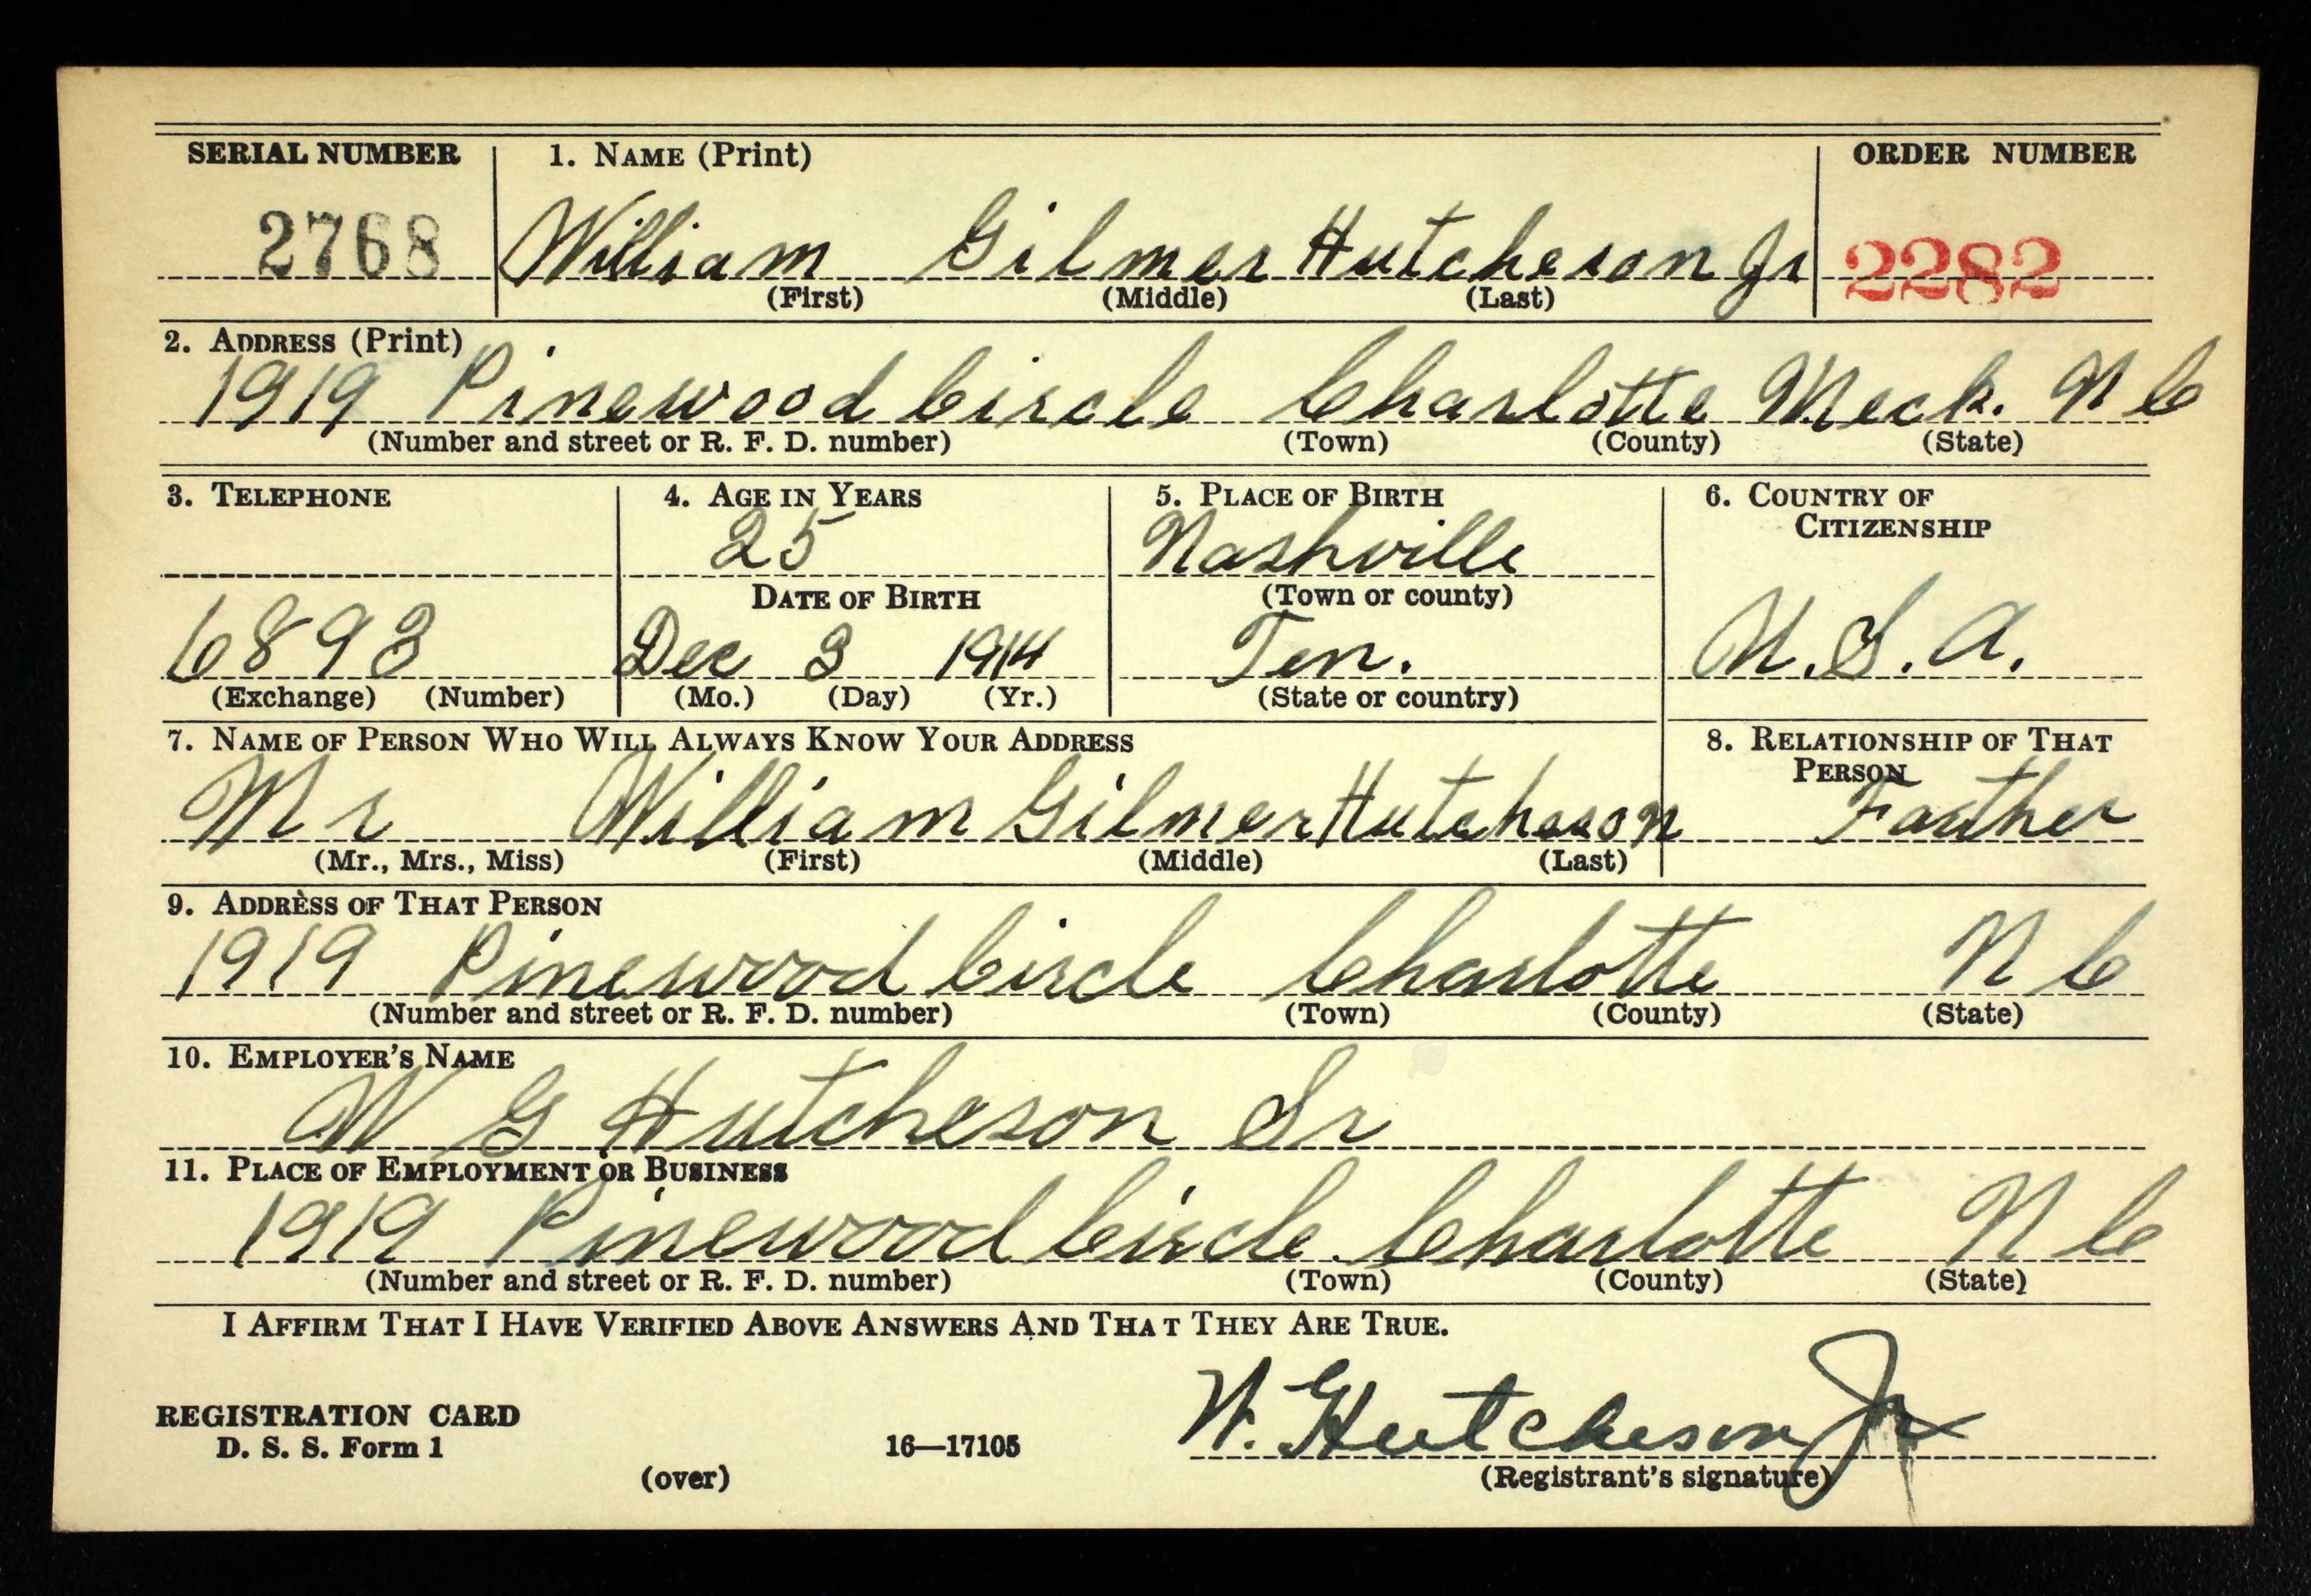 SERIAL NUMBER 1. NAME (Print) ORDER NUMBER
2768 William Gilmer Hutcheson Jr 2282
(First) (Middle) (Last)
2. ADDRESS (Print)
1919 Pinewood Circle Charlotte Meck. N C
(Number and street or R. F. D. number) (Town) (County) (State)
3. TELEPHONE 4. AGE IN YEARS 5. PLACE OF BIRTH 6. COUNTRY OF
CITIZENSHIP
25 Nashville
DATE OF BIRTH (Town or county)
6893 Dec 3 1914 Ten. U.S.A.
(Exchange) (Number) (Mo.) (Day) (Yr.) (State or country)
7. NAME OF PERSON WHO WILL ALWAYS KNOW YOUR ADDRESS 8. RELATIONSHIP OF THAT
PERSON
Mr William Gilmer Hutcheson Father
(Mr., Mrs., Miss) (First) (Middle) (Last)
9. ADDRESS OF THAT PERSON
1919 Pinewood Circle Charlotte N C
(Number and street or R. F. D. number) (Town) (County) (State)
10. EMPLOYER'S NAME
W G Hutcheson Sr
11. PLACE OF EMPLOYMENT OR BUSINESS
1919 Pinewood Circle. Charlotte N C
(Number and street or R. F. D. number) (Town) (County) (State)
I AFFIRM THAT I HAVE VERIFIED ABOVE ANSWERS AND THAT THEY ARE TRUE.
REGISTRATION CARD
D. S. S. Form 1 16—17105 W. G Hutcheson Jr
(over) (Registrant's signature)